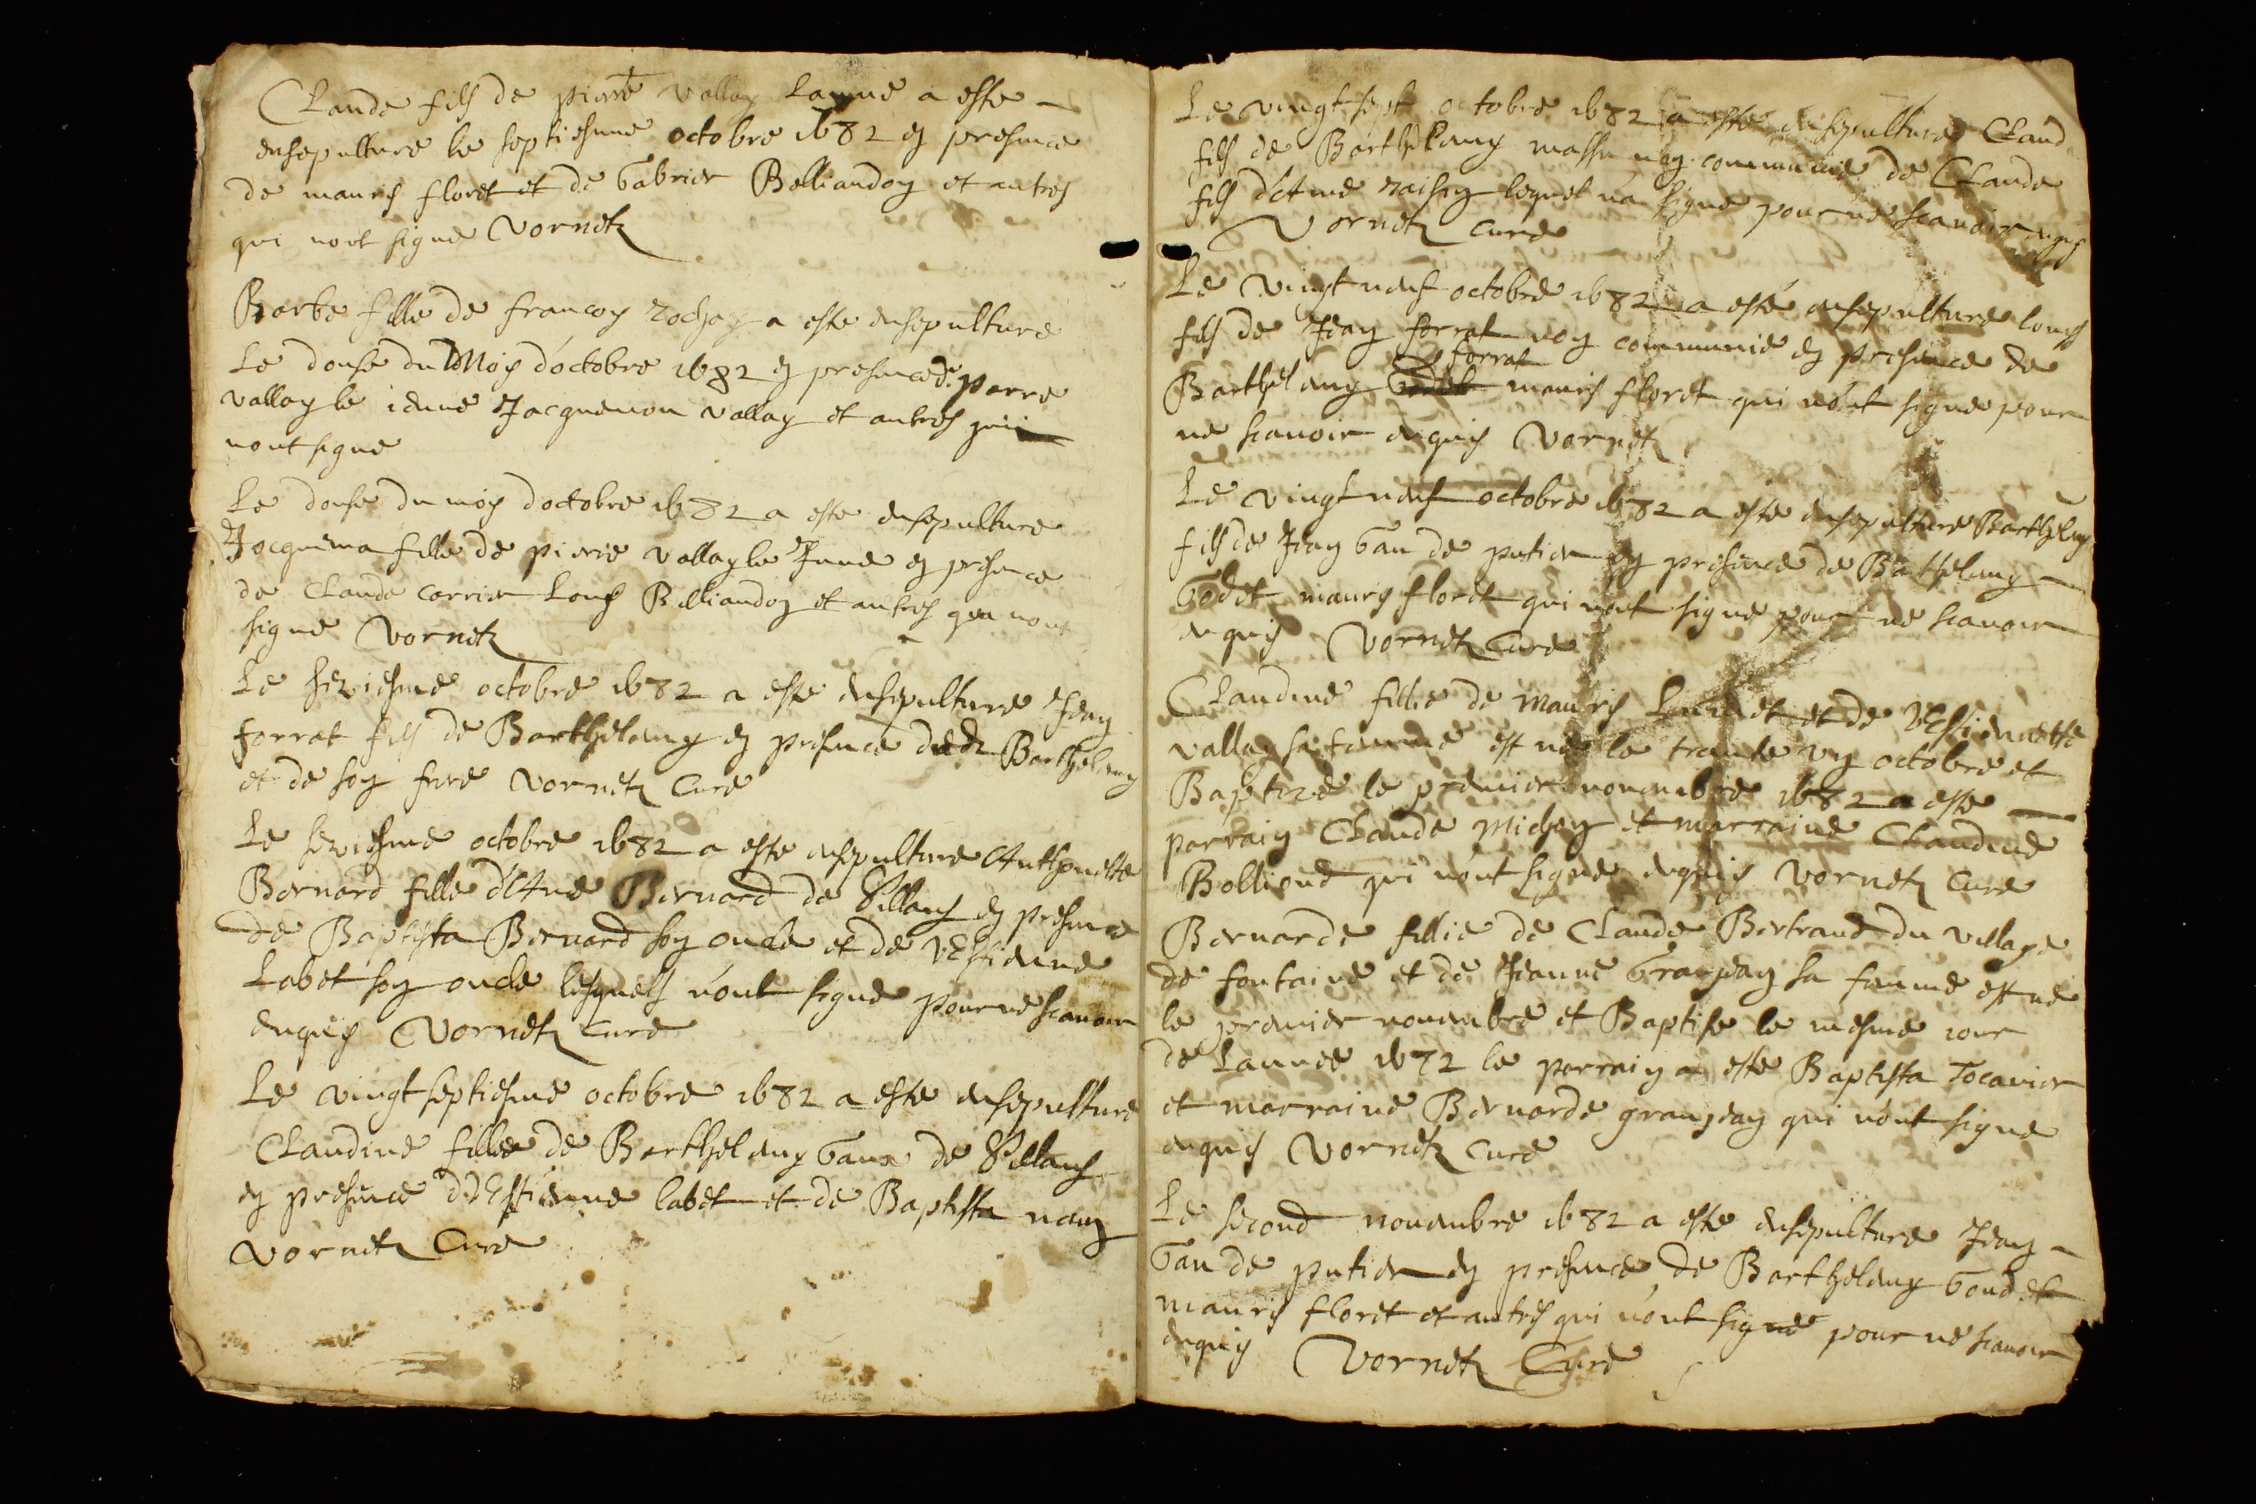 Claude fils de pierre vallay Laine a este
ensepulture le septiesme octobre 1682 en presence
de mauris floret et de Gabrier Belliandon et autres
qui nont signe Vornetz
Barbe fille de francoy rochay a este ensepulture
Le douse du Moy d'octobre 1682 en presence de pierre
vallay le ieune Jacquemon vallay et autres qui
nont signe
Le douse du moy doctobre 1682 a este ensepulture
Jacquema fille de pierre vallay le Jeune en presence
de Claude corrier Louis Belliandon et autres qui nont
signe Vornetz
Le seziesme octobre 1682 a este ensepulture Jean
forrat fils de Barthelemy en presence dudt Barthelemy
et de son frere Vornetz Cure
Le seziesme octobre 1682 a este ensepulture Anthonette
Bernard fille d'Ane Bernard de Sillans en presence
de Baptista Bernard son oncle et de Estienne
Labet son oncle lesquels n'ont signe pour ne scavoir
enquis Vornetz Cure
Le vingt septiesme octobre 1682 a este ensepulture
Claudine fille de Barthelemy Gaux de Sillans
en presence d'Estienne labet et de Baptista
Vornetz Cure
Le vingt sept octobre 1682 a este ensepulture Claud
fils de Barthelemy non communie de Claude
fils d'Ane lequel na signe pour ne scavoir enquis
Vornetz cure
Le vingt neuf octobre 1682 a esté ensepulture louis
fils de Jean forrat non communie en presence de
forrat
Barthelemy mauris floret qui n'ont signe pour
ne scavoir enquis Vornetz
Le vingt neuf octobre 1682 a este ensepulture Barthelemy
fils de Jean Gau de putier en presence de Barthelemy
Godet mauris floret qui n'ont signe pour ne scavoir
enquis Vornetz Cure
Claudine fillie de Mauris et de Estiennette
vallay sa famme est nee le trante un octobre et
Baptize le premier novembre 1682 a este
parrain Claude Michon et marraine Claudine
Belliond qui n'ont signe enquis Vornetz Cure
Bernarde fillie de Claude Bertrand du village
de fontaine et de Jeanne Granjean sa famme est ne
le premier novembre et Baptise le mesme iour
de Lannee 1672 le parrain a este Baptista Tocanier
et marraine Bernarde granjean qui n'ont signe
enquis Vornetz Cure
Le second novembre 1682 a este ensepulture Jean
Gau de putier en presence de Barthelemy Goudet
mauris floret et autres qui n'ont signe pour ne scavoir
enquis Vornetz Cure